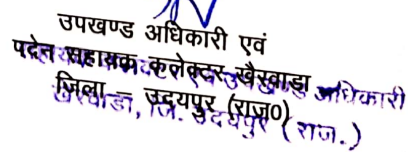 उपखण्ड अधिकारी एवं
पदेन सहायक कलेक्टर खैरवाड़ा
जिला – उदयपुर (राज0)
अधिकारी
खैरवाड़ा, जि. उदयपुर (राज.)